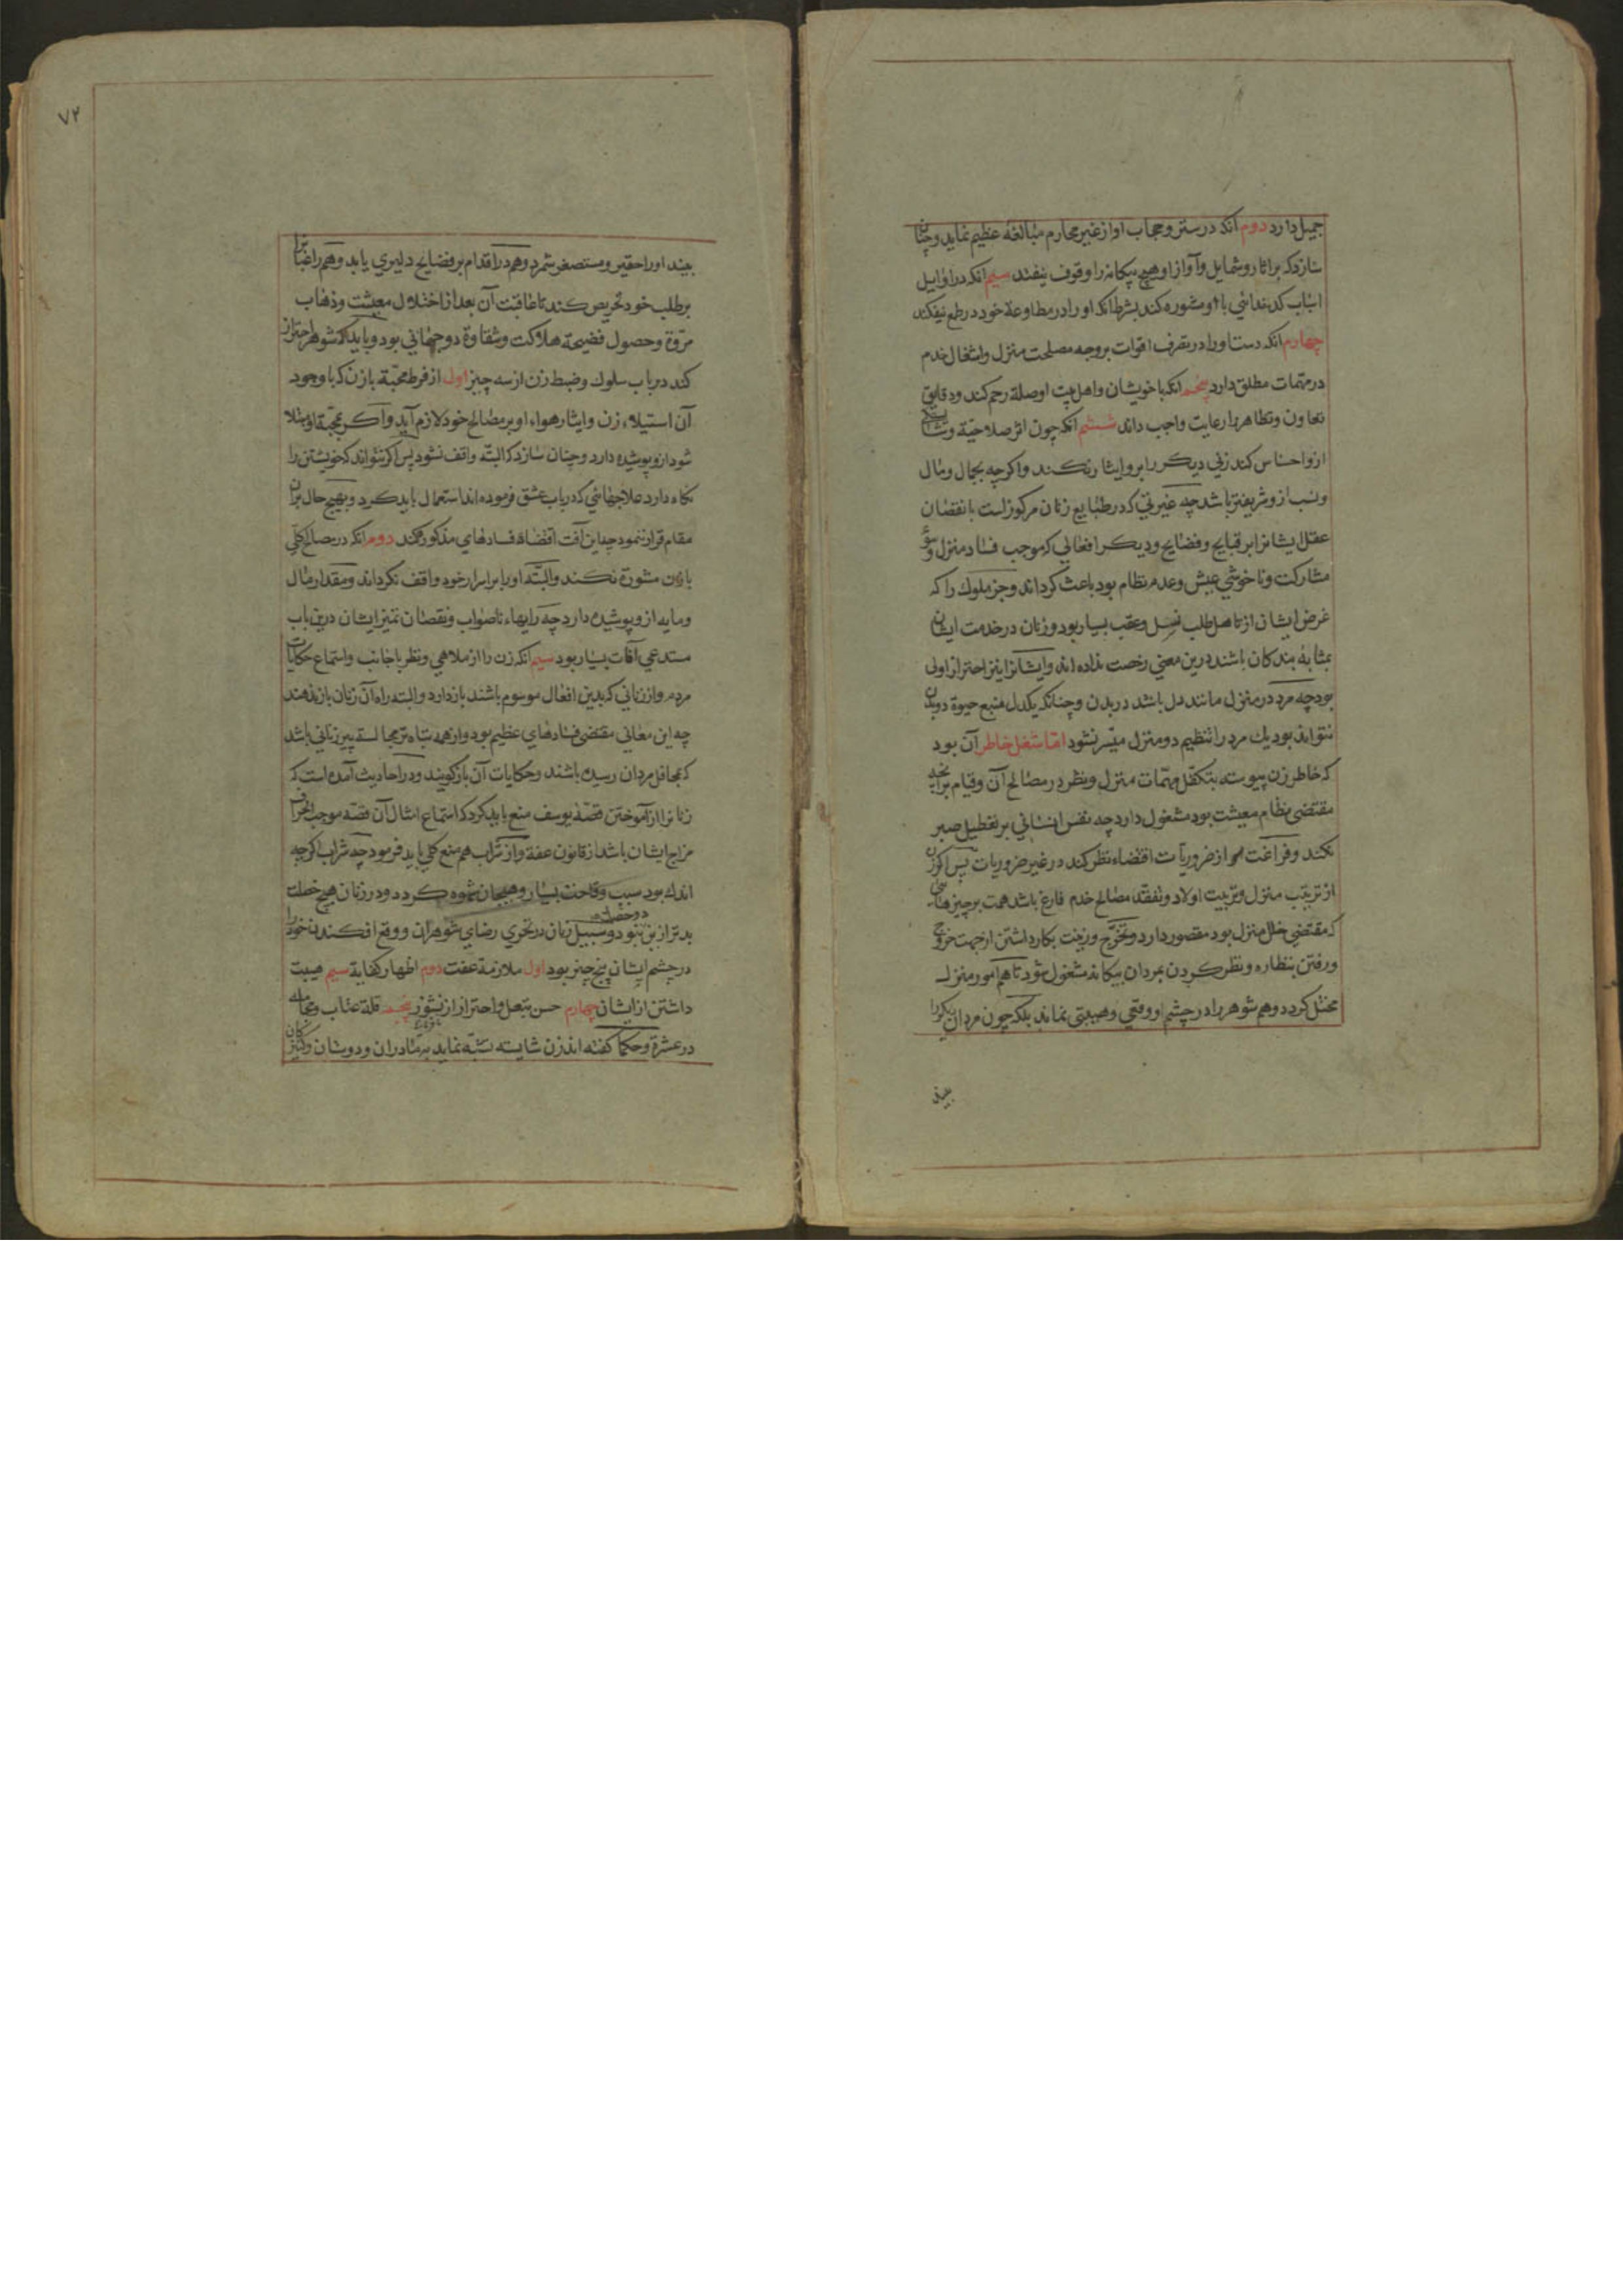 جمیل دارد دوم انکه در ستر و حجاب او از غیر محارم مبالغه عظیم نماید و چنان
سازد که بر اثار و شمایل و آواز او هیچ بیکانه را وقوف نیفتد سیم انکه در اوایل
اسباب کدخدائی با او مشوره کند بشرط انکه او را در مطاوعة خود در طمع نیفکند
چهارم انکه دست او را در تصرف اقوات بر وجه مصلحت منزل و اشغال خدم
در مهمات مطلق دارد پنجم انکه با خویشان و اهل بیت او صلة رحم کند و دقایق
تعاون و تظاهر را رعایت واجب داند ششم انکه چون اثر صلاحیة و شایستکی
ازو احساس کند زنی دیکر را برو ایثار نکند و اکرچه بجمال و مال
و نسب ازو شریفتر باشد چه غیرتی که در طبایع زنان مرکوز است با نقصان
عقل ایشانرا بر قبایح و فضایح و دیکر افعالی که موجب فساد منزل و سوء
مشارکت و ناخوشی عیش و عدم نظام بود باعث کرداند و جز ملوک را که
غرض ایشان از تاهل طلب نسل و عقب بسیار بود و زنان در خدمت ایشان
بمثابه بندکان باشند درین معنی رخصت نداده اند و ایشانرا نیز احتراز اولی
بود چه مرد در منزل مانند دل باشد در بدن و چنانکه یکدل منبع حیوة دو بدن
نتواند بود یک مرد را تنظیم دو منزل میسر نشود اما شغل خاطر آن بود
که خاطر زن پیوسته بتکفل مهمات منزل و نظر در مصالح آن و قیام بدانچه
مقتضی نظام معیشت بود مشغول دارد چه نفس انسانی بر تعطیل صبر
نکند و فراغت از ضروریات اقتضاء نظر کند در غیر ضروریات پس اکر زن
از ترتیب منزل و تربیت اولاد و تفقد مصالح خدم فارغ باشد همت بر چیزهائی
که مقتضی خلل منزل بود مقصور دارد و بتخرج و زینت بکار داشتن از جهت خروج
و رفتن بنظاره و نظر کردن بمردان بیکانه مشغول شود تا هم امور منزل
مختل کردد و هم شوهر را در چشم او وقعی و هیبتی نماند بلکه چون مردان دیکر را
بیند
۷۲
بیند او را حقیر و مستصغر شمرد و هم در اقدام بر فضایح دلیری یابد و هم راغبانرا
بر طلب خود تحریص کند تا عاقبت آن بعد از اختلال معیشت و ذهاب
مروة و حصول فضیحة هلاکت و شقاوة دو جهانی بود و باید که شوهر احتراز
کند در باب سلوک و ضبط زن از سه چیز اول از فرط محبة با زن که با وجود
آن استیلاء زن و ایثار هواء او بر مصالح خود لازم آید و اکر بمحبة او مبتلا
شود ازو پوشیده دارد و چنان سازد که البته واقف نشود پس اکر نتواند که خویشتن را
نکاه دارد علاجهائی که در باب عشق فرموده اند استعمال باید کرد و بهیچ حال بران
مقام قرار ننمود چه این آفت اقتضاء فسادهای مذکوره کند دوم انکه در مصالح کلی
با زن مشورة نکند و البته او را بر اسرار خود واقف نکرداند و مقدار مال
و مایه ازو پوشیده دارد چه رایهاء ناصواب و نقصان تمیز ایشان درین باب
مستدعی آفات بسیار بود سیم انکه زن را از ملاهی و نظر باجانب و استماع حکایات
مردم و از زنانی که بدین افعال موسوم باشند باز دارد و البته راه آن زنان باز ندهند
چه این معانی مقتضی فسادهای عظیم بود و از همه تباه تر مجالسة پیر زنانی باشد
که بمحافل مردان رسیده باشند و حکایات آن باز کویند و در احادیث آمده است که
زنانرا از آموختن قصة یوسف منع باید کرد که استماع امثال آن قصه موجب انحراف
مزاج ایشان باشد از قانون عفة و از شراب هم منع کلی باید فرمود چه شراب اکرچه
اندک بود سبب وقاحت بسیار و هیجان شهوه کردد و در زنان هیچ خصلت
بدتر ازین دو خصلت نبود و سبیل زنان در تحری رضای شوهران و وقع افکندن خود را
در چشم ایشان پنج چیز بود اول ملازمة عفت دوم اظهار کفایة سیم هیبت
داشتن از ایشان چهارم حسن تبعل و احتراز از نشوز پنجم قلة عتاب و مجامله
در عشرة و حکما کفته اند زن شایسته تشبه نماید بمادران و دوستان و کنیزکان